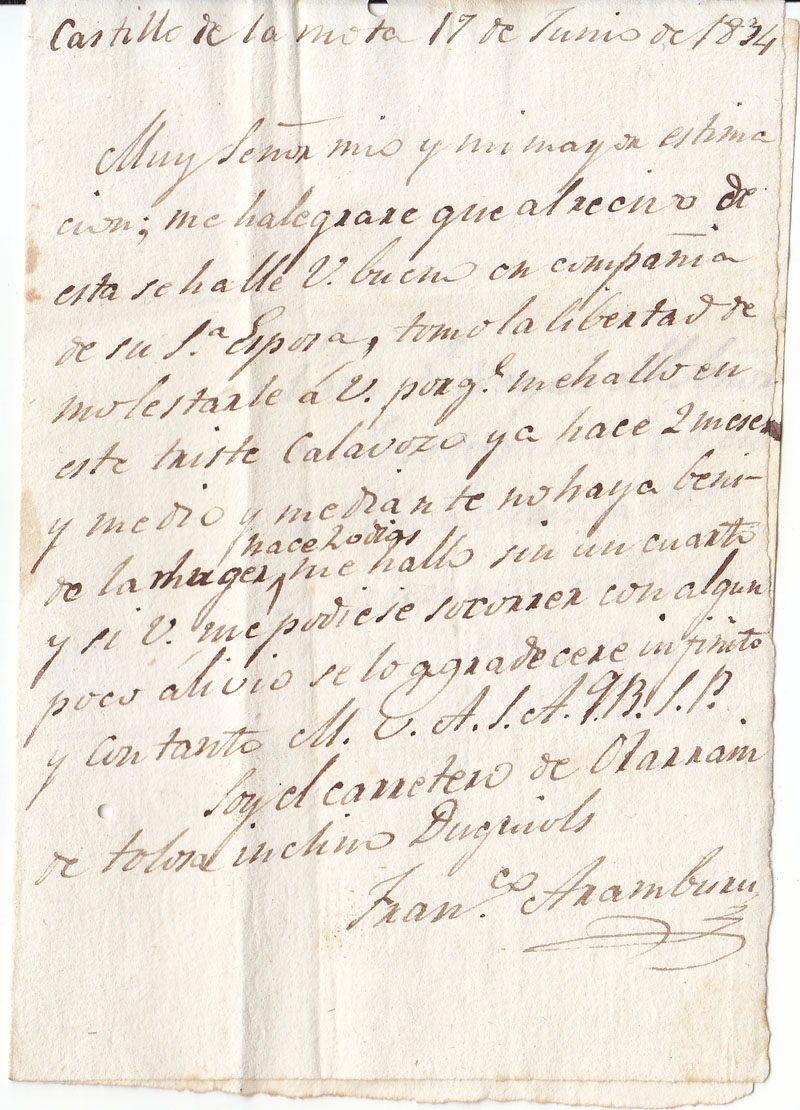 Castillo de la mota 17 de Junio de 1834
Muy Señor mio y mi mayor estima
cion; me halegrare que al recivo de
esta se halle V. bueno en compañia
de su S.ª Esposa, tomo la libertad de
molestarle á V. porq.e me hallo en
este triste Calavozo ya hace 2 meses
y medio y mediante no haya beni-
hace 20 dias
de la muger, me hallo sin un cuarto
y si V. me podiese socorrer con algun
poco álivio se lo agradecere infinito
y con tanto M. V. A. S. A. q. B. S. P.
Soy el carretero de Olarrain
de tolosa inclino
Fran.co Aramburu